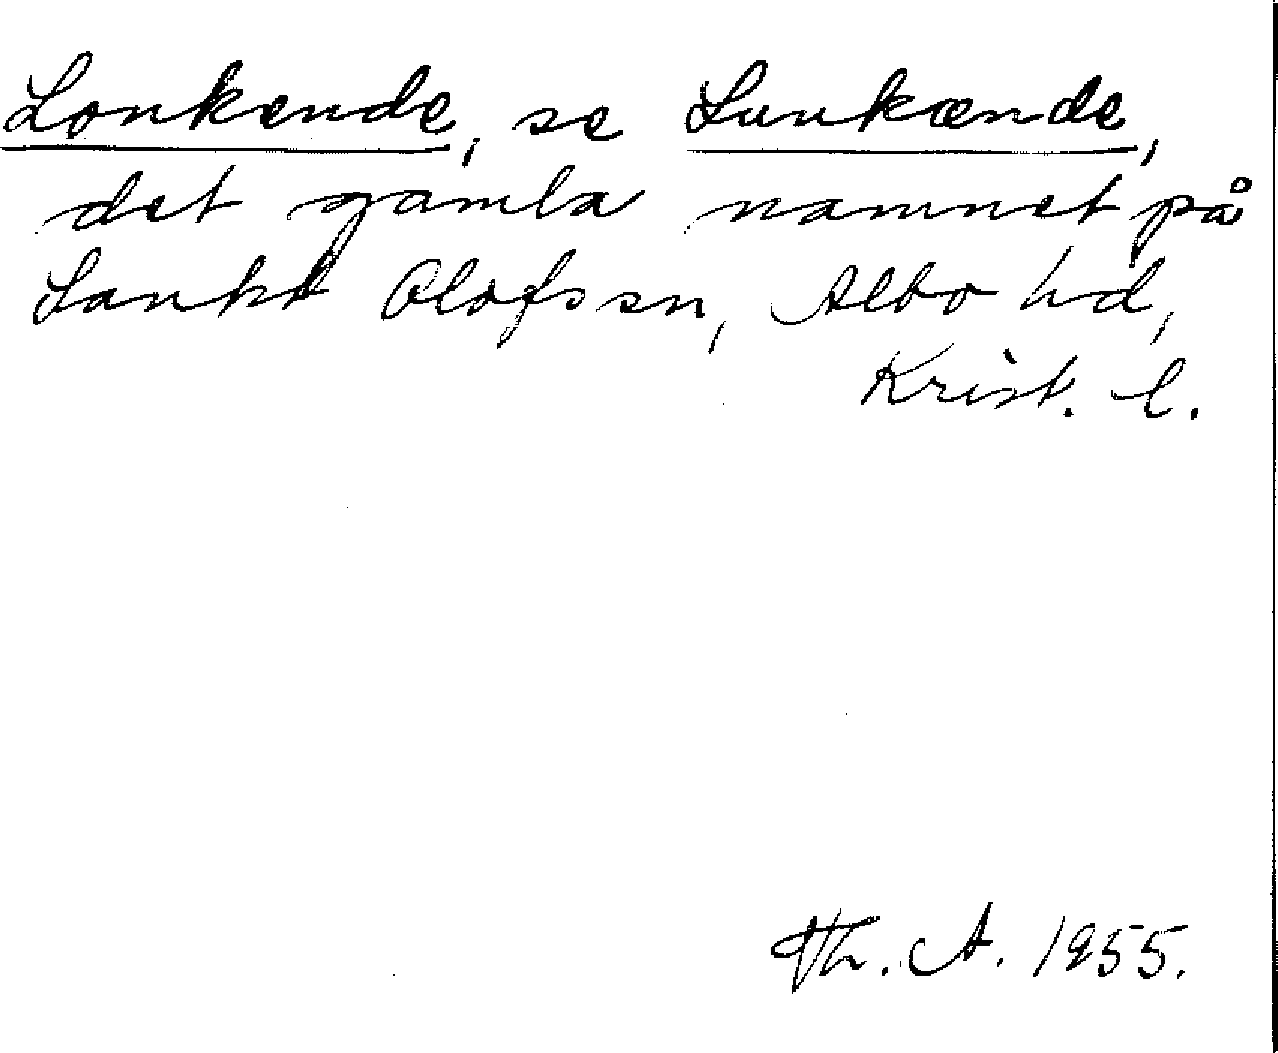 Lonkende, se Lunkænde,
det gamla namnet på
Sankt Olofs sn, Albo hd,
Krist. l.
Th. A. 1955.